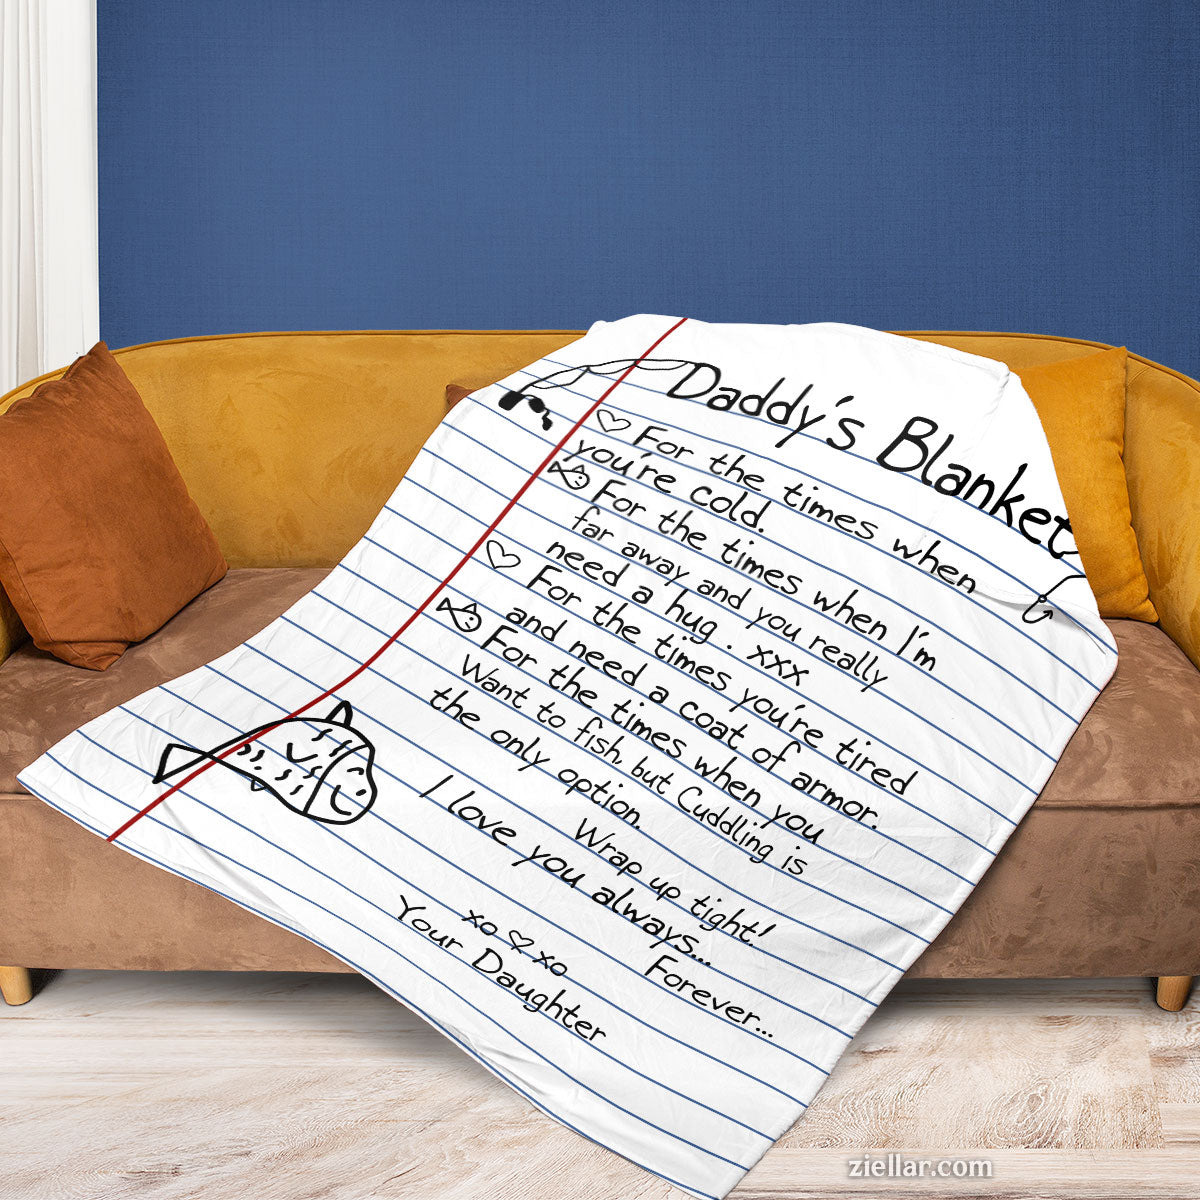 Daddy's Blanket
For the times when
you're cold.
For the times when I'm
far away and you really
need a hug. xxx
For the times you're tired
and need a coat of armor.
For the times when you
Want to fish, but Cuddling is
the only option.
Wrap up tight!
I love you always...
Forever...
xo xo
Your Daughter
ziellar.com